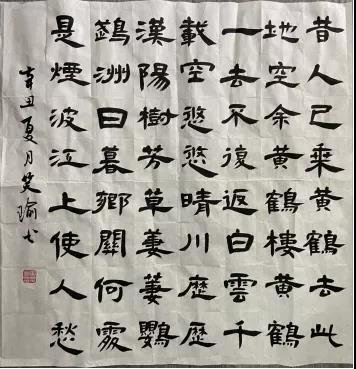 昔人已乘黃鶴去此
地空余黃鶴樓黃鶴
一去不復返白雲千
載空悠悠晴川歷歷
漢陽樹芳草萋萋鸚
鵡洲日暮鄉關何處
是煙波江上使人愁
辛丑夏月笑瑜书